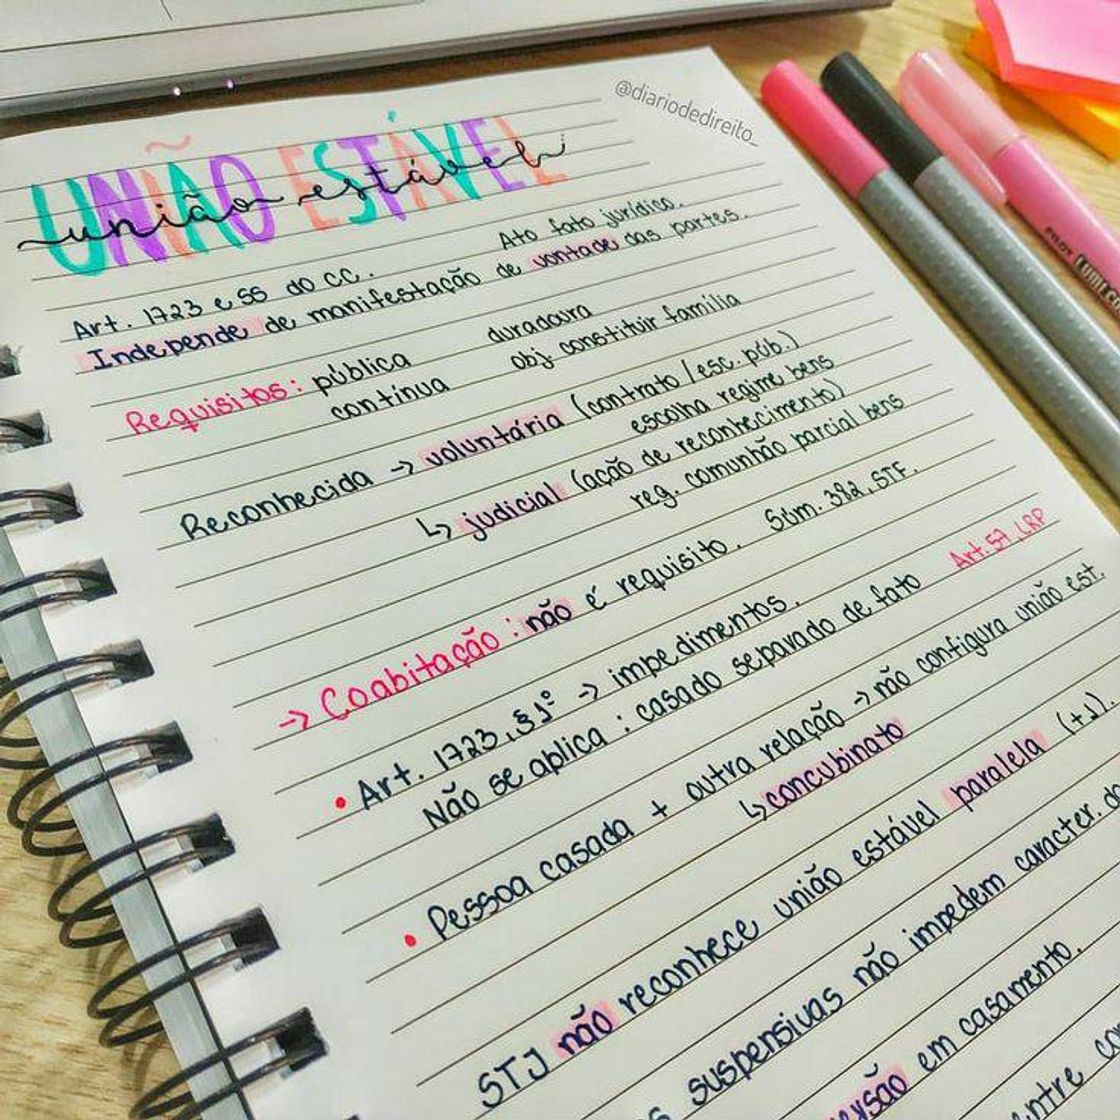 @diariodedireito_
UNIÃO ESTÁVEL
união estável
Art. 1723 e ss do CC. Ato fato jurídico.
Independe de manifestação de vontade das partes.
Requisitos: pública duradoura
contínua obj. constituir família
Reconhecida → voluntária (contrato/esc. púb.)
escolha regime bens
↳ judicial (ação de reconhecimento)
reg. comunhão parcial bens
→ Coabitação: não é requisito. Súm. 382, STF.
• Art. 1723, §1º → impedimentos.
Não se aplica: casado separado de fato Art. 57, LRP
• Pessoa casada + outra relação → não configura união est.
↳ concubinato
STJ não reconhece união estável paralela (+1).
suspensivas não impedem caracter.
em casamento.
PILOT